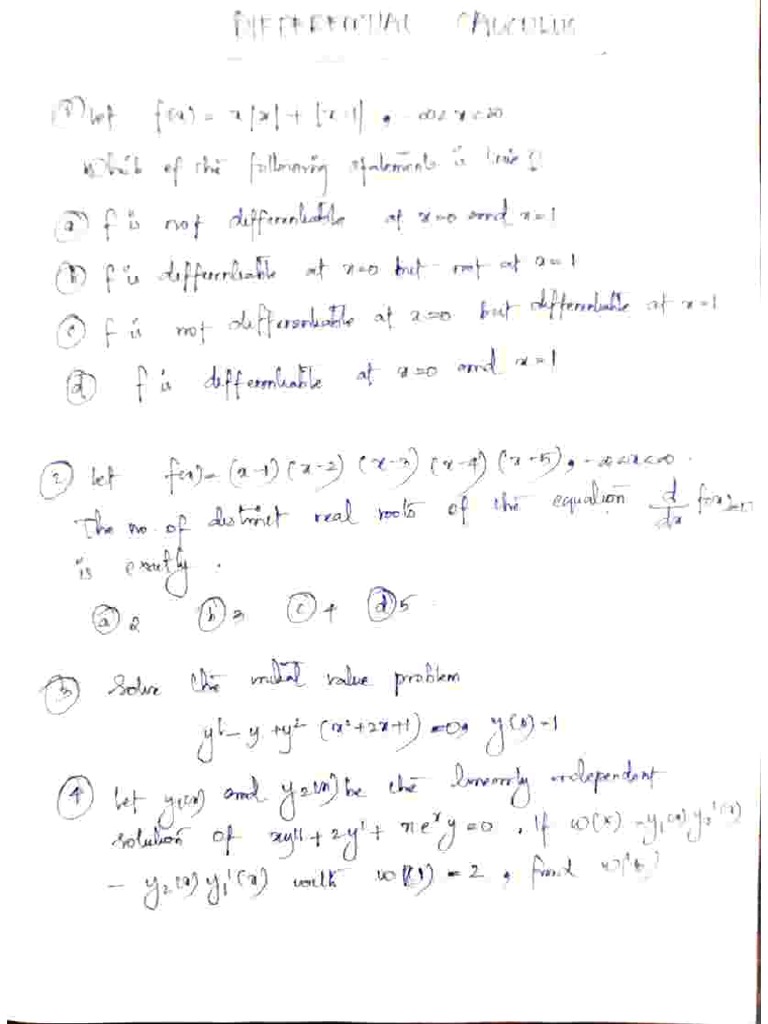 DIFFERENTIAL CALCULUS
① Let f(x) = x|x| + |x-1| , -∞<x<∞
Which of the following statements is true?
ⓐ f is not differentiable at x=0 and x=1
ⓑ f is differentiable at x=0 but not at x=1
ⓒ f is not differentiable at x=0 but differentiable at x=1
ⓓ f is differentiable at x=0 and x=1
② let f(x)= (x-1) (x-2) (x-3) (x-4) (x-5), -∞<x<∞.
The no. of distinct real roots of the equation d/dx f(x)=0
is exactly.
ⓐ 2 ⓑ 3 ⓒ 4 ⓓ 5
③ Solve the initial value problem
y' - y + y² (x²+2x+1) = 0, y(0)=1
④ Let y₁(x) and y₂(x) be the linearly independent
solution of xy'' + 2y' + xeˣy = 0 . If w(x) = y₁(x) y₂'(x)
- y₂(x) y₁'(x) with w(1) = 2 , find